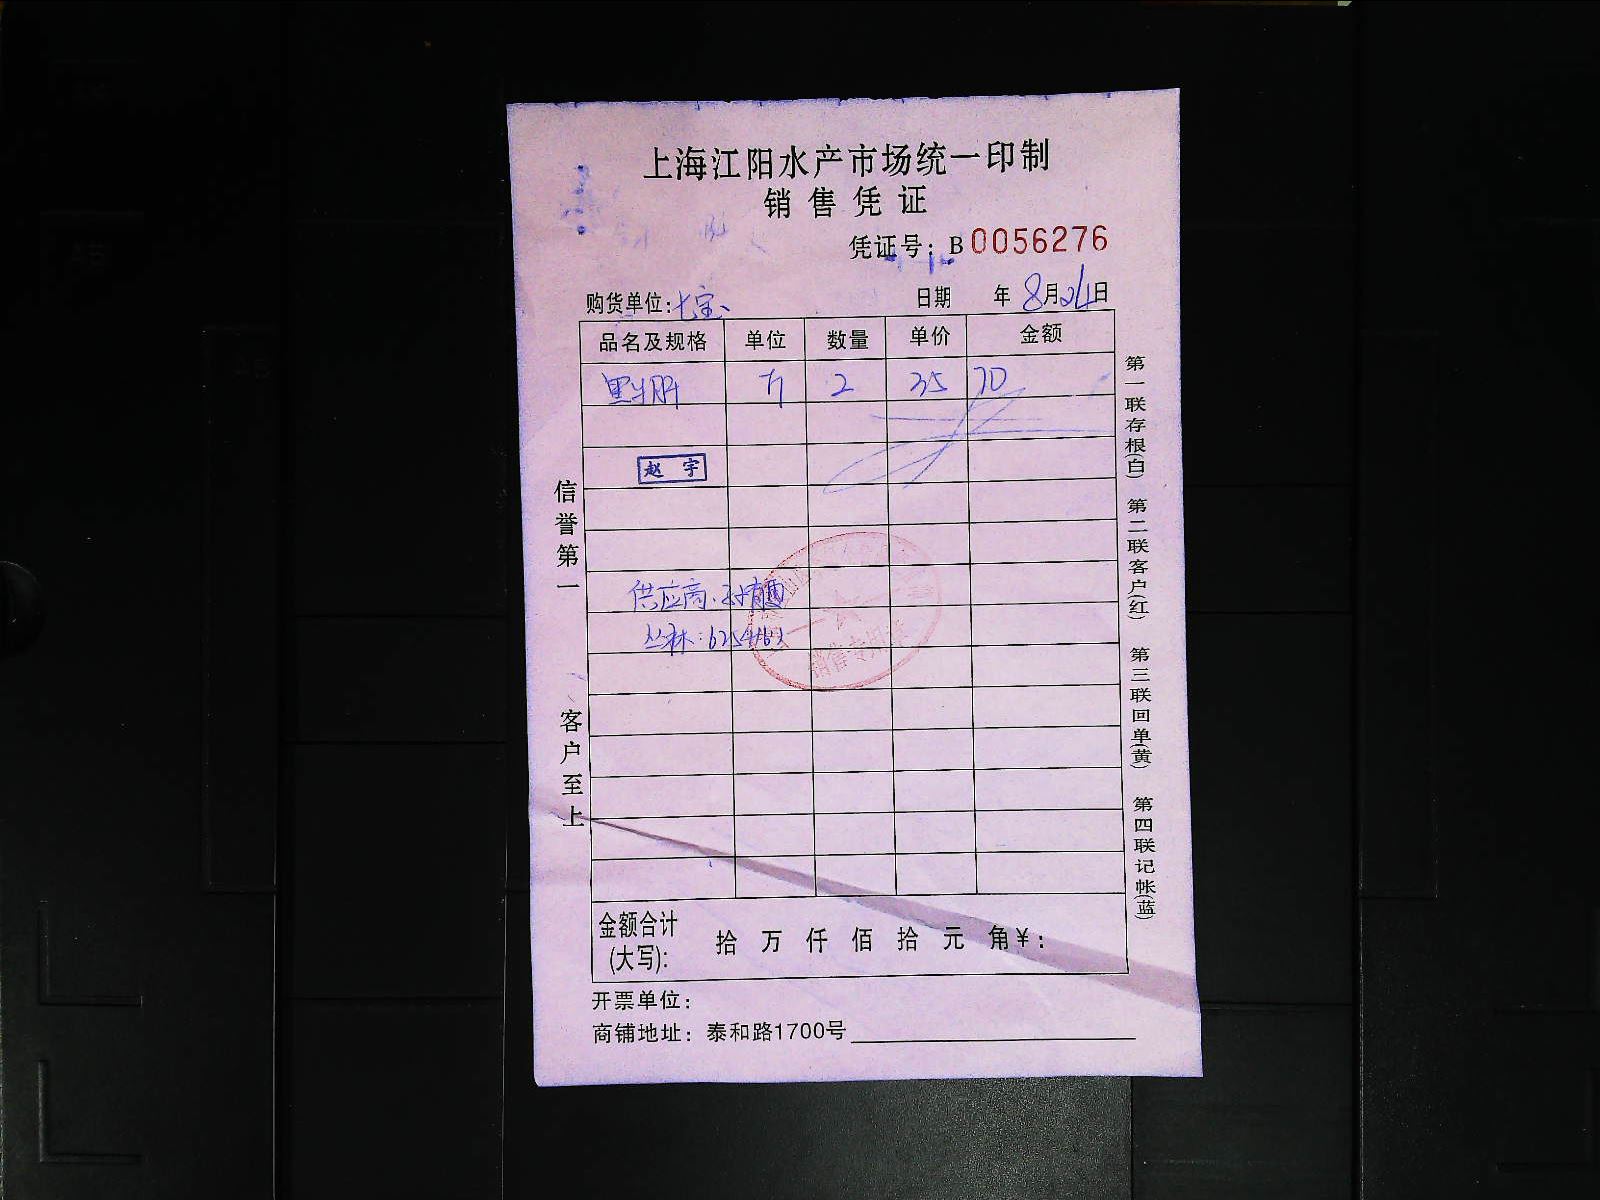 上海江阳水产市场统一印制
销售凭证
凭证号：B0056276
购货单位：七宝 日期 年 8月24日
品名及规格 单位 数量 单价 金额
斤 2 35 70
赵宇
供应商
丛林：
销售专用章
信誉第一
客户至上
第一联存根(白) 第二联客户(红) 第三联回单(黄) 第四联记帐(蓝)
金额合计 拾 万 仟 佰 拾 元 角¥：
(大写)：
开票单位：
商铺地址：泰和路1700号